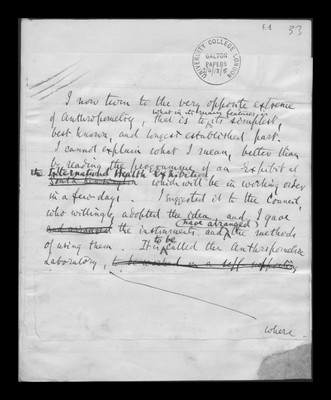 F.1 33
UNIVERSITY COLLEGE LONDON
GALTON PAPERS
I now turn to the very opposite extreme
what in its main features
of Anthropometry, that is to its simplest,
best known, and longest established part.
I cannot explain what I mean, better than
by reading the programme of an Exhibit at
the International Health exhibition
South Kensington which will be in working order
in a few days. I suggested it to the Council,
who willingly adopted the idea, and I gave
have arranged
and arranged the instruments and the methods
to be
of using them. It is called the Anthropometric
Laboratory, to be worked on a self supporting
where